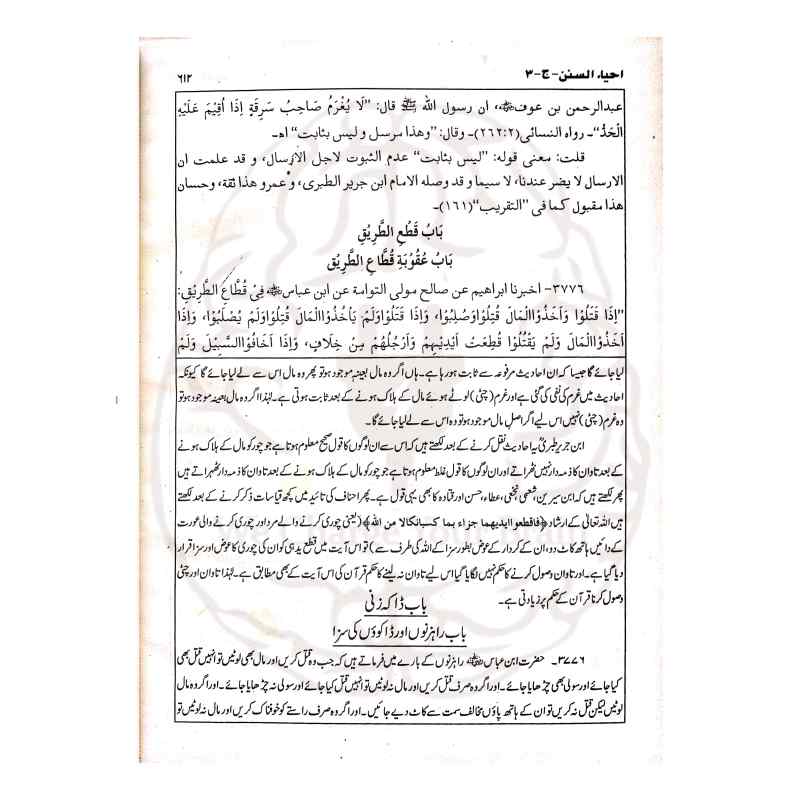 احیاء السنن-ج-۳
٦١٢
عبدالرحمن بن عوف، ان رسول الله ﷺ قال: "لَا يُغْرَمُ صَاحِبُ سَرِقَةٍ اِذَا اُقِيْمَ عَلَيْهِ
الْحَدُّ"۔ رواہ النسائی(۲:۲۶۲)۔ وقال: "وهذا مرسل و ليس بثابت" اھ۔
قلت: معنى قوله: "ليس بثابت" عدم الثبوت لاجل الارسال، و قد علمت ان
الارسال لا يضر عندنا، لا سيما و قد وصله الامام ابن جرير الطبرى، و عمرو هذا ثقة، وحسان
هذا مقبول كما فى "التقريب"(۱۶۱)۔
بَابُ قَطْعِ الطَّرِيْقِ
بَابُ عُقُوْبَةِ قُطَّاعِ الطَّرِيْقِ
۳۷۷٦- اخبرنا ابراهيم عن صالح مولى التوامة عن ابن عباس فِيْ قُطَّاعِ الطَّرِيْقِ:
"اِذَا قَتَلُوْا وَ اَخَذُوْا الْمَالَ قُتِلُوْا وَصُلِبُوْا، وَاِذَا قَتَلُوْا وَلَمْ يَاْخُذُوْا الْمَالَ قُتِلُوْا وَلَمْ يُصْلَبُوْا، وَاِذَا
اَخَذُوْا الْمَالَ وَلَمْ يَقْتُلُوْا قُطِعَتْ اَيْدِيْهِمْ وَاَرْجُلُهُمْ مِنْ خِلَافٍ، وَاِذَا اَخَافُوْا السَّبِيْلَ وَلَمْ
لیا جائے گا جیسا کہ ان احادیث مرفوعہ سے ثابت ہورہا ہے۔ ہاں اگر وہ مال بعینہ موجود ہو تو پھر وہ مال اس سے لے لیا جائے گا کیونکہ
احادیث میں غرم کی نفی کی گئی ہے اور غرم (چٹی) لوٹے ہوئے مال کے ہلاک ہونے کے بعد ثابت ہوتی ہے۔ لہٰذا اگر وہ مال بعینہ موجود ہو تو
وہ غرم (چٹی) نہیں اس لیے اگر اصل مال موجود ہو تو وہ اس سے لے لیا جائے گا۔
ابن جریر طبریؒ یہ احادیث نقل کرنے کے بعد لکھتے ہیں کہ اس سے ان لوگوں کا قول صحیح معلوم ہوتا ہے جو چور کو مال کے ہلاک ہونے
کے بعد تاوان کا ذمہ دار نہیں ٹھہراتے اور ان لوگوں کا قول غلط معلوم ہوتا ہے جو چور کو مال کے ہلاک ہونے کے بعد تاوان کا ذمہ دار ٹھہراتے ہیں
پھر لکھتے ہیں کہ ابن سیرین، شعبی، نخعی، عطاء، حسن اور قتادہ کا بھی یہی قول ہے۔ پھر احناف کی تائید میں کچھ قیاسات ذکر کرنے کے بعد لکھتے
ہیں اللہ تعالیٰ کے ارشاد ﴿فاقطعوا ایدیهما جزاء بما کسبا نکالا من الله﴾ (یعنی چوری کرنے والے مرد اور چوری کرنے والی عورت
کے دائیں ہاتھ کاٹ دو، ان کے کردار کے عوض بطور سزا کے اللہ کی طرف سے) تو اس آیت میں قطع ید ہی کو ان کی چوری کا عوض اور سزا قرار
دیا گیا ہے۔ اور تاوان وصول کرنے کا حکم نہیں لگایا گیا اس لیے تاوان نہ لینے کا حکم قرآن کی اس آیت کے بھی مطابق ہے۔ لہٰذا تاوان اور چٹی
وصول کرنا قرآن کے حکم پر زیادتی ہے۔
باب ڈاکہ زنی
باب راہزنوں اور ڈاکوؤں کی سزا
۳۷۷٦۔ حضرت ابن عباس راہزنوں کے بارے میں فرماتے ہیں کہ جب وہ قتل کریں اور مال بھی لوٹیں تو انہیں قتل بھی
کیا جائے اور سولی بھی چڑھایا جائے۔ اور اگر وہ صرف قتل کریں اور مال نہ لوٹیں تو انہیں قتل کیا جائے اور سولی نہ چڑھایا جائے۔ اور اگر وہ مال
لوٹیں لیکن قتل نہ کریں تو ان کے ہاتھ پاؤں مخالف سمت سے کاٹ دیے جائیں۔ اور اگر وہ صرف راستے کو خوفناک کریں اور مال نہ لوٹیں تو